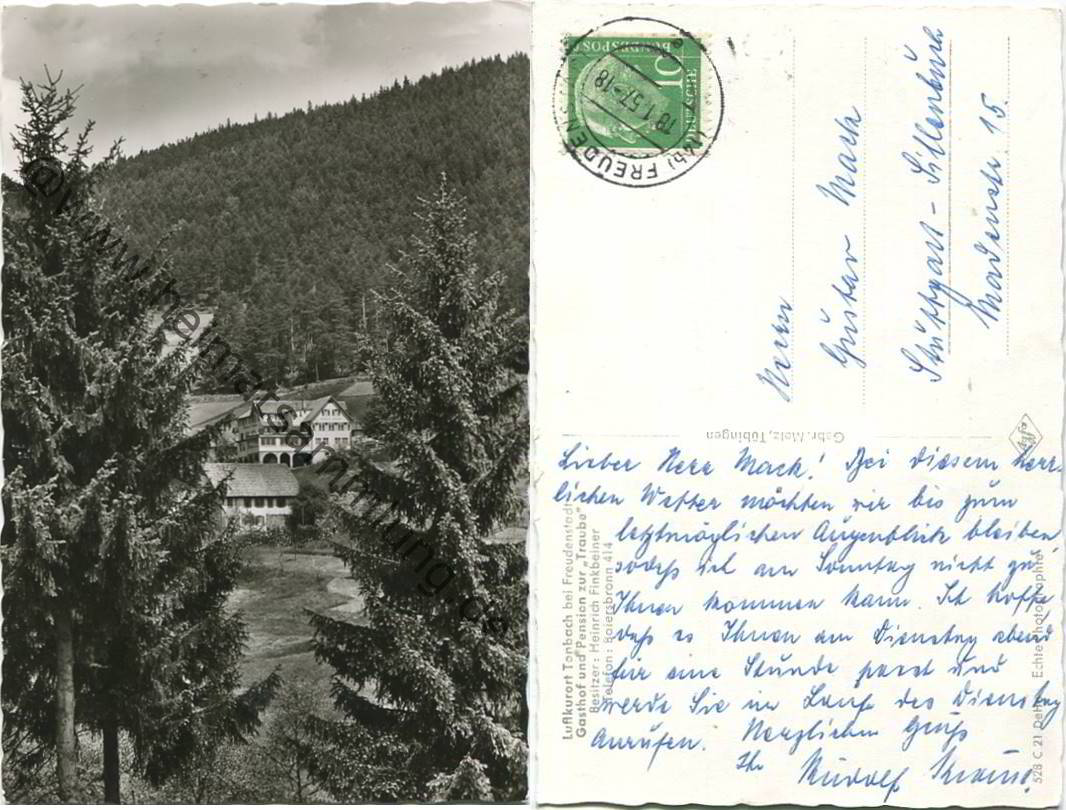 @www.heimatsammlung.de
DEUTSCHE
BUNDESPOST
10
(14b) FREUDEN
18.1.57.-18
Herrn
Gustav Mack
Stuttgart-Sillenbuch
15.
Gebr. Metz, Tübingen
Agfa
Lieber Herr Mack! Bei diesem herr-
lichen Wetter möchten wir bis zum
letztmöglichen Augenblick bleiben
sodaß ich am Sonntag nicht zu
Ihnen kommen kann. Ich hoffe
daß es Ihnen am Dienstag abend
für eine Stunde passt und
werde Sie im Laufe des Dienstag
anrufen. Herzlichen Gruß
Ihr Rudolf
Luftkurort Tonbach bei Freudenstadt
Gasthof und Pension zur „Traube"
Besitzer: Heinrich Finkbeiner
Telefon: Baiersbronn 414
528 C 21 Echte Photographie